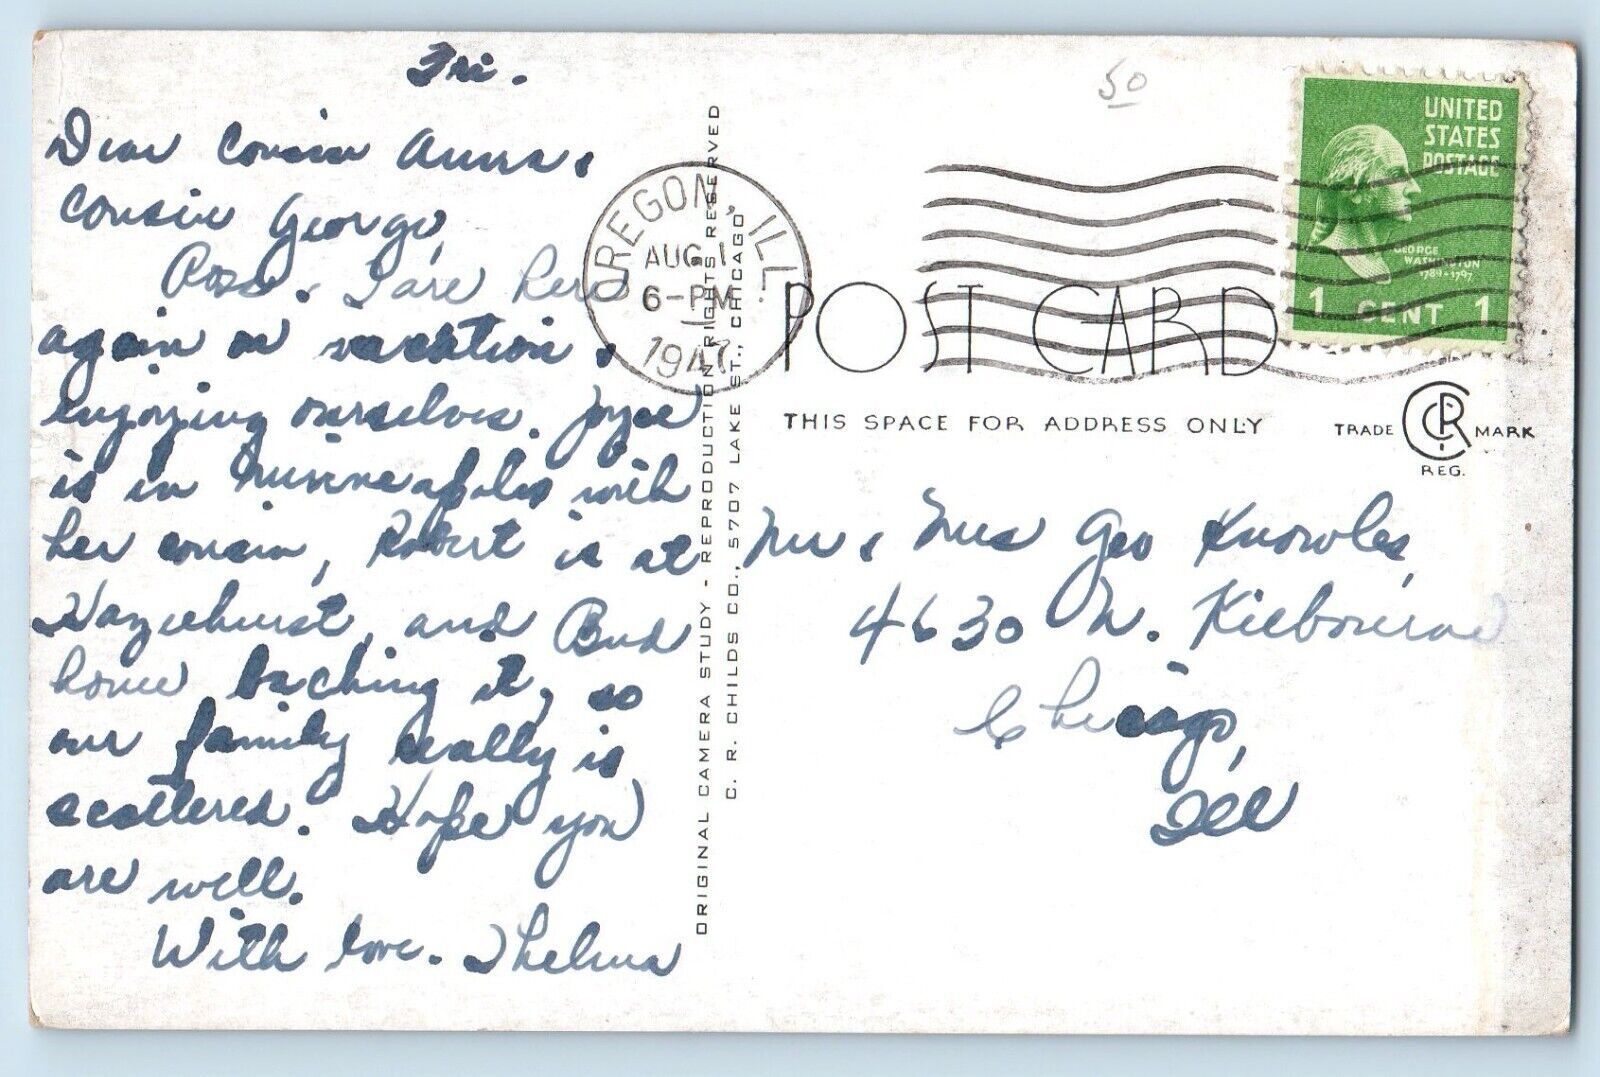 Fri.
Dear Cousin Anna &
Cousin George,
Ross & I are here
again on vacation &
enjoying ourselves. Joyce
is in Minneapolis with
her cousin, Robert is at
Hazelhurst, and Bud
home baching it, so
our family really is
scattered. Hope you
are well.
With love. Thelma
ORIGINAL CAMERA STUDY - REPRODUCTION RIGHTS RESERVED
C. R. CHILDS CO., 5707 LAKE ST., CHICAGO
OREGON, ILL.
AUG 1
6-PM
1947
50
UNITED
STATES
POSTAGE
GEORGE
WASHINGTON
1789-1797
1 CENT 1
POST CARD
THIS SPACE FOR ADDRESS ONLY
TRADE CRC MARK
REG.
Mr & Mrs Geo Knowles,
4630 N. Kilbourne
Chicago,
Ill